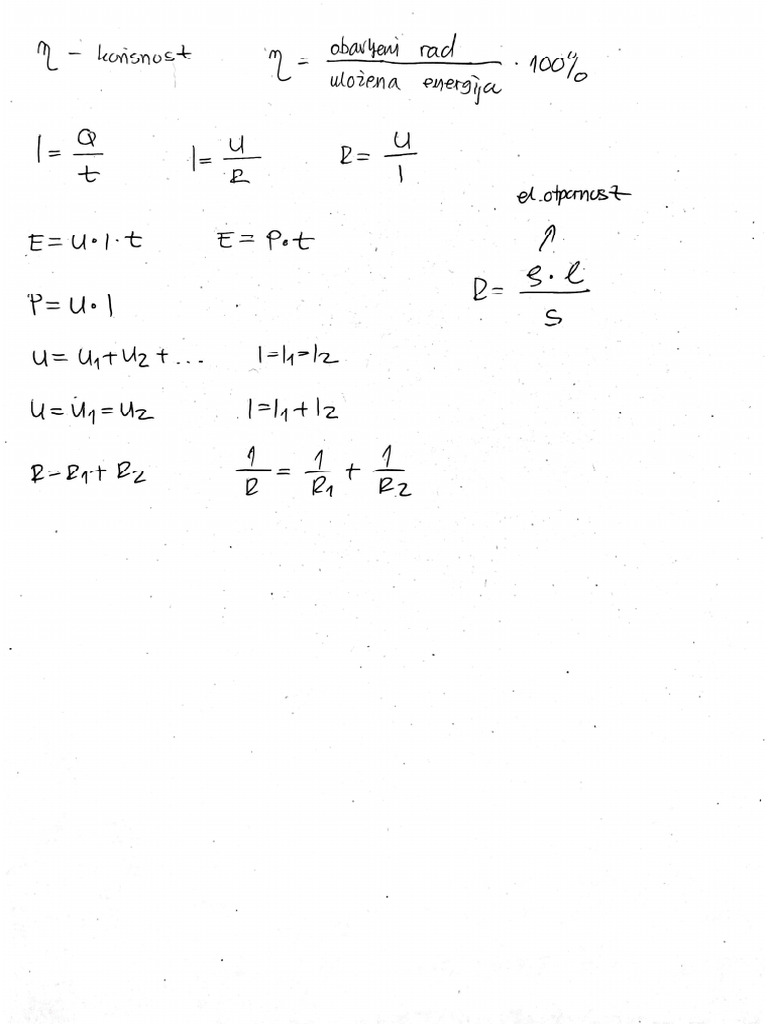 η - korisnost η = obavljeni rad / uložena energija · 100%
I = Q / t I = U / R R = U / I
el. otpornost
E = U · I · t E = P · t
↑
R = ρ · l / S
P = U · I
U = U₁ + U₂ + ... I = I₁ = I₂
U = U₁ = U₂ I = I₁ + I₂
R - R₁ + R₂ 1 / R = 1 / R₁ + 1 / R₂